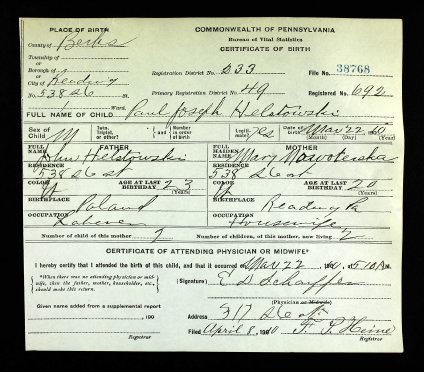 PLACE OF BIRTH
COMMONWEALTH OF PENNSYLVANIA
County of Berks
Bureau of Vital Statistics
CERTIFICATE OF BIRTH
Township of
or
Borough of
or
City of Reading
Registration District No. 533
File No. 38768
No. 538 S 6 St.
Primary Registration District No. 49
Registered No. 692
Ward.
FULL NAME OF CHILD Paul Joseph Helstowski
Sex of Child M
Twin, Triplet, or other?
and
Number in order of birth
Legitimate? Yes
Date of birth Mar 22 1910
(Month) (Day) (Year)
FATHER
FULL NAME John Helstowski
RESIDENCE 538 S 6 St
COLOR W
AGE AT LAST BIRTHDAY 23
(Years)
BIRTHPLACE Poland
OCCUPATION Laborer
MOTHER
FULL MAIDEN NAME Mary
RESIDENCE 538 S 6 St
COLOR W
AGE AT LAST BIRTHDAY 20
(Years)
BIRTHPLACE Reading Pa
OCCUPATION Housewife
Number of child of this mother 2
Number of children, of this mother, now living 2
CERTIFICATE OF ATTENDING PHYSICIAN OR MIDWIFE*
I hereby certify that I attended the birth of this child, and that it occurred on Mar 22 1910, at 5 10 A M.
*When there was no attending physician or midwife, then the father, mother, householder, etc., should make this return.
(Signature) E D Schaeffer
(Physician or Midwife)
Given name added from a supplemental report
190
Address 317 S 6 St
Registrar
Filed April 8, 1910 F. P. Heine
Registrar